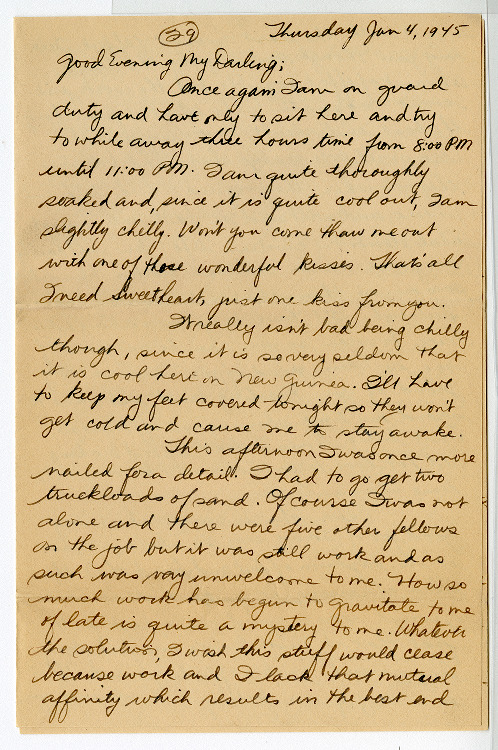 29
Thursday Jan 4, 1945
Good Evening My Darling;
Once again I am on guard
duty and have only to sit here and try
to while away three hours time from 8:00 PM
until 11:00 PM. I am quite thoroughly
soaked and, since it is quite cool out, I am
slightly chilly. Won't you come thaw me out
with one of those wonderful kisses. That's all
I need sweetheart, just one kiss from you.
It really isn't bad being chilly
though, since it is so very seldom that
it is cool here on New Guinea. I'll have
to keep my feet covered tonight so they won't
get cold and cause me to stay awake.
This afternoon I was once more
nailed for a detail. I had to go get two
truckloads of sand. Of course I was not
alone and there were five other fellows
on the job but it was still work and as
such was very unwelcome to me. How so
much work has begun to gravitate to me
of late is quite a mystery to me. Whatever
the solution, I wish this stuff would cease
because work and I lack that mutual
affinity which results in the best end